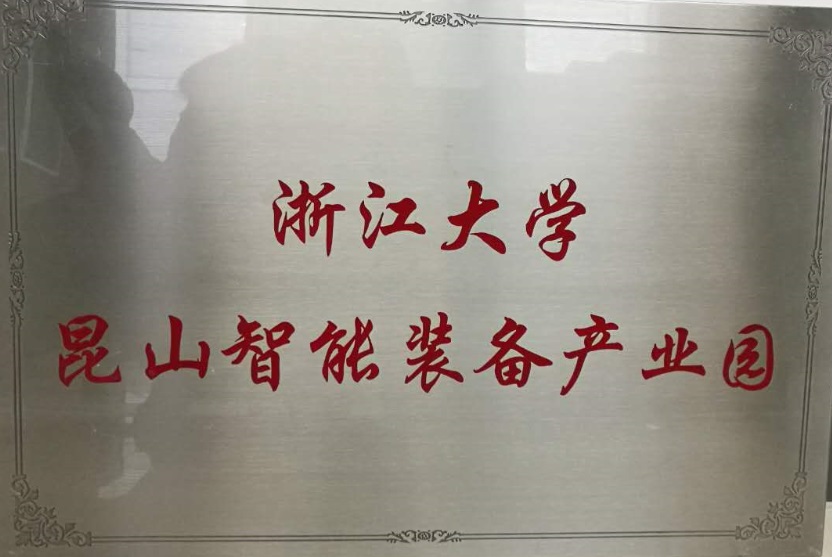 浙江大学
昆山智能装备产业园